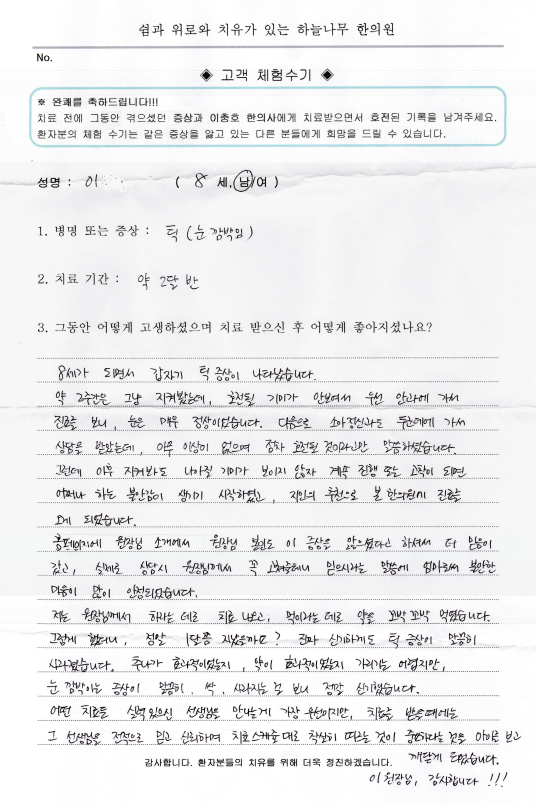 쉼과 위로와 치유가 있는 하늘나무 한의원
No.
◈ 고객 체험수기 ◈
※ 완쾌를 축하드립니다!!!
치료 전에 그동안 겪으셨던 증상과 이충호 한의사에게 치료받으면서 호전된 기록을 남겨주세요.
환자분의 체험 수기는 같은 증상을 앓고 있는 다른 분들에게 희망을 드릴 수 있습니다.
성명 : 이 ( 8 세, 남/여 )
1. 병명 또는 증상 : 틱 (눈 깜박임)
2. 치료 기간 : 약 2달 반
3. 그동안 어떻게 고생하셨으며 치료 받으신 후 어떻게 좋아지셨나요?
8세가 되면서 갑자기 틱 증상이 나타났습니다.
약 2주간은 그냥 지켜봤는데, 호전될 기미가 안보여서 우선 안과에 가서
진료를 보니, 눈은 매우 정상이었습니다. 다음으로 소아정신과도 두군데에 가서
상담을 받았는데, 아무 이상이 없으며 점차 호전될 것이라고만 말씀하셨습니다.
그런데 이후 지켜봐도 나아질 기미가 보이지 않자 계속 진행 또는 고착이 되면
어쩌나 하는 불안감이 생기기 시작하였고, 지인의 추천으로 본 한의원에서 진료를
보게 되었습니다.
홈페이지에 원장님 소개에서 원장님 본인도 이 증상을 앓으셨다고 하셔서 더 믿음이
갔고, 실제로 상담시 원장님께서 꼭 고쳐줄테니 믿으시라는 말씀에 엄마로써 불안한
마음이 많이 안정되었습니다.
저는 원장님께서 하라는 데로 치료 나오고, 먹이라는 데로 약을 꼬박꼬박 먹였습니다.
그렇게 했더니, 정말 1달쯤 지났을까요? 진짜 신기하게도 틱 증상이 말끔히
사라졌습니다. 추나가 효과적이었는지, 약이 효과적이었는지 가리기는 어렵지만,
눈 깜박이는 증상이 말끔히, 싹, 사라지는 걸 보니 정말 신기했습니다.
어떤 치료든 실력있으신 선생님을 만나는게 가장 우선이지만, 치료를 받을때에는
그 선생님을 전적으로 믿고 신뢰하며 치료스케쥴대로 착실히 따르는 것이 중요하다는 것을 아이를 보고
깨닫게 되었습니다.
감사합니다. 환자분들의 치유를 위해 더욱 정진하겠습니다.
이 원장님, 감사합니다 !!!